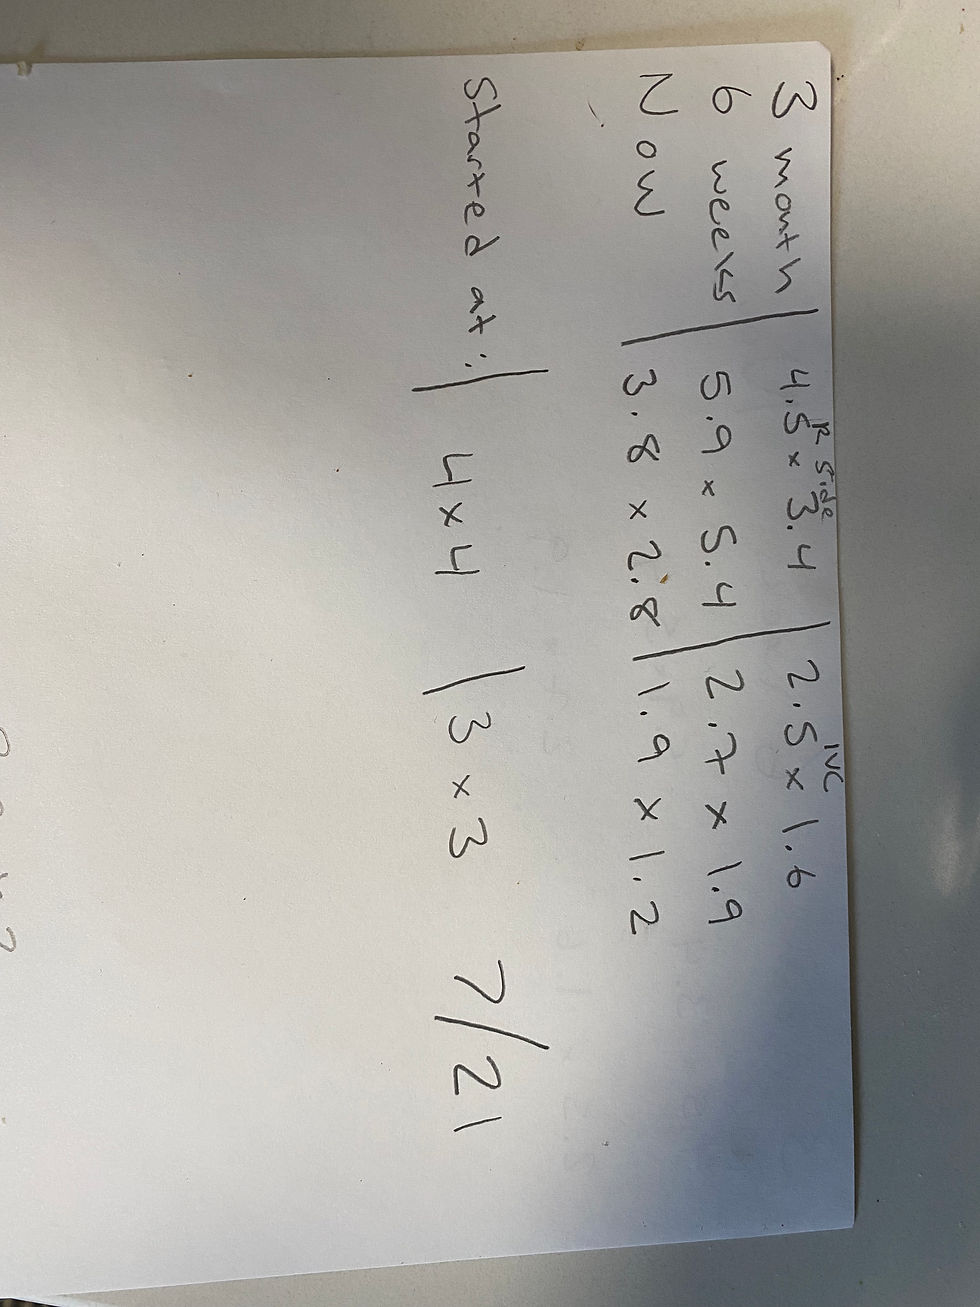 R side IVC
3 month | 4.5 x 3.4 | 2.5 x 1.6
6 weeks | 5.9 x 5.4 | 2.7 x 1.9
Now | 3.8 x 2.8 | 1.9 x 1.2
Started at: | 4 x 4 | 3 x 3 7/21